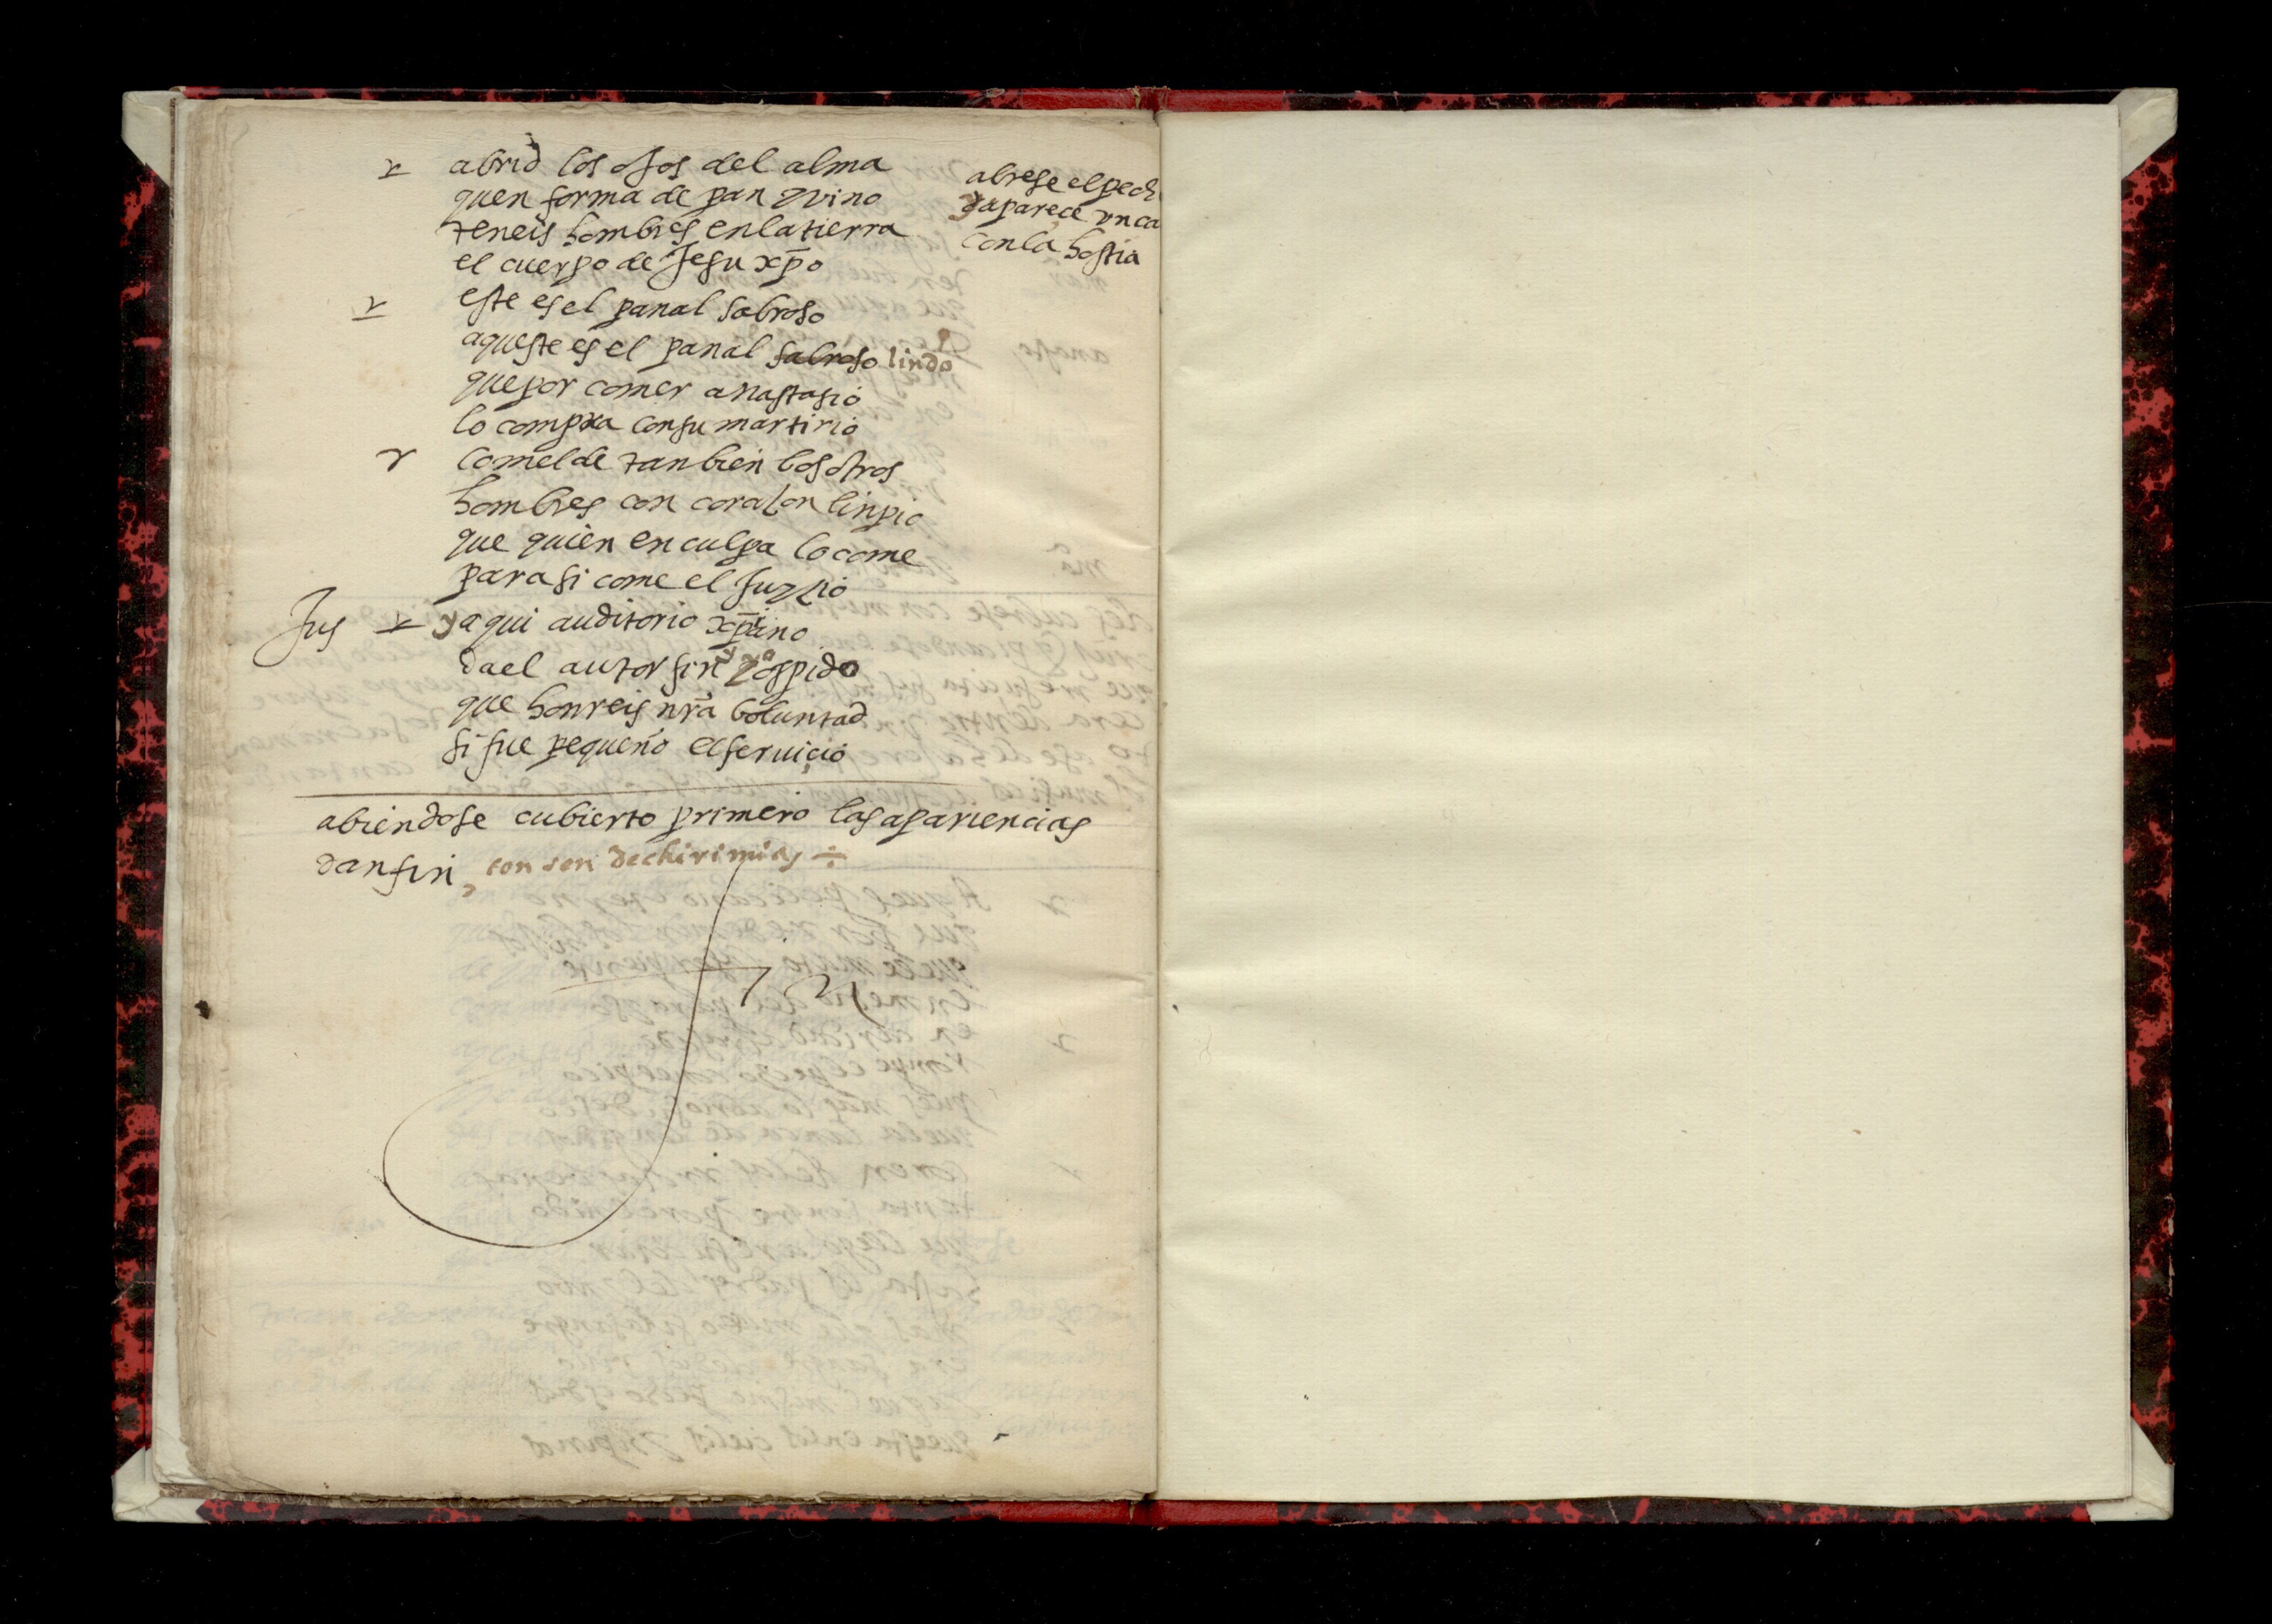 abrid los ojos del alma
quen forma de pan y vino
teneis hombres en la tierra
el cuerpo de Jesu xpo
abrese el pech
y aparece vn ca
con la hostia
este es el panal sabroso
aqueste es el panal sabroso lindo
que por comer anastasio
lo compra con su martirio
comelde tanbien bosotros
hombres con coraçon linpio
que quien en culpa lo come
para si come el juyçio
Jus y aqui auditorio xpiano
da el autor fin y os pido
que honreis nra boluntad
si fue pequeño el seruiçio
abiendose cubierto primero las apariencias
dan fin, con son de chirimias
fin